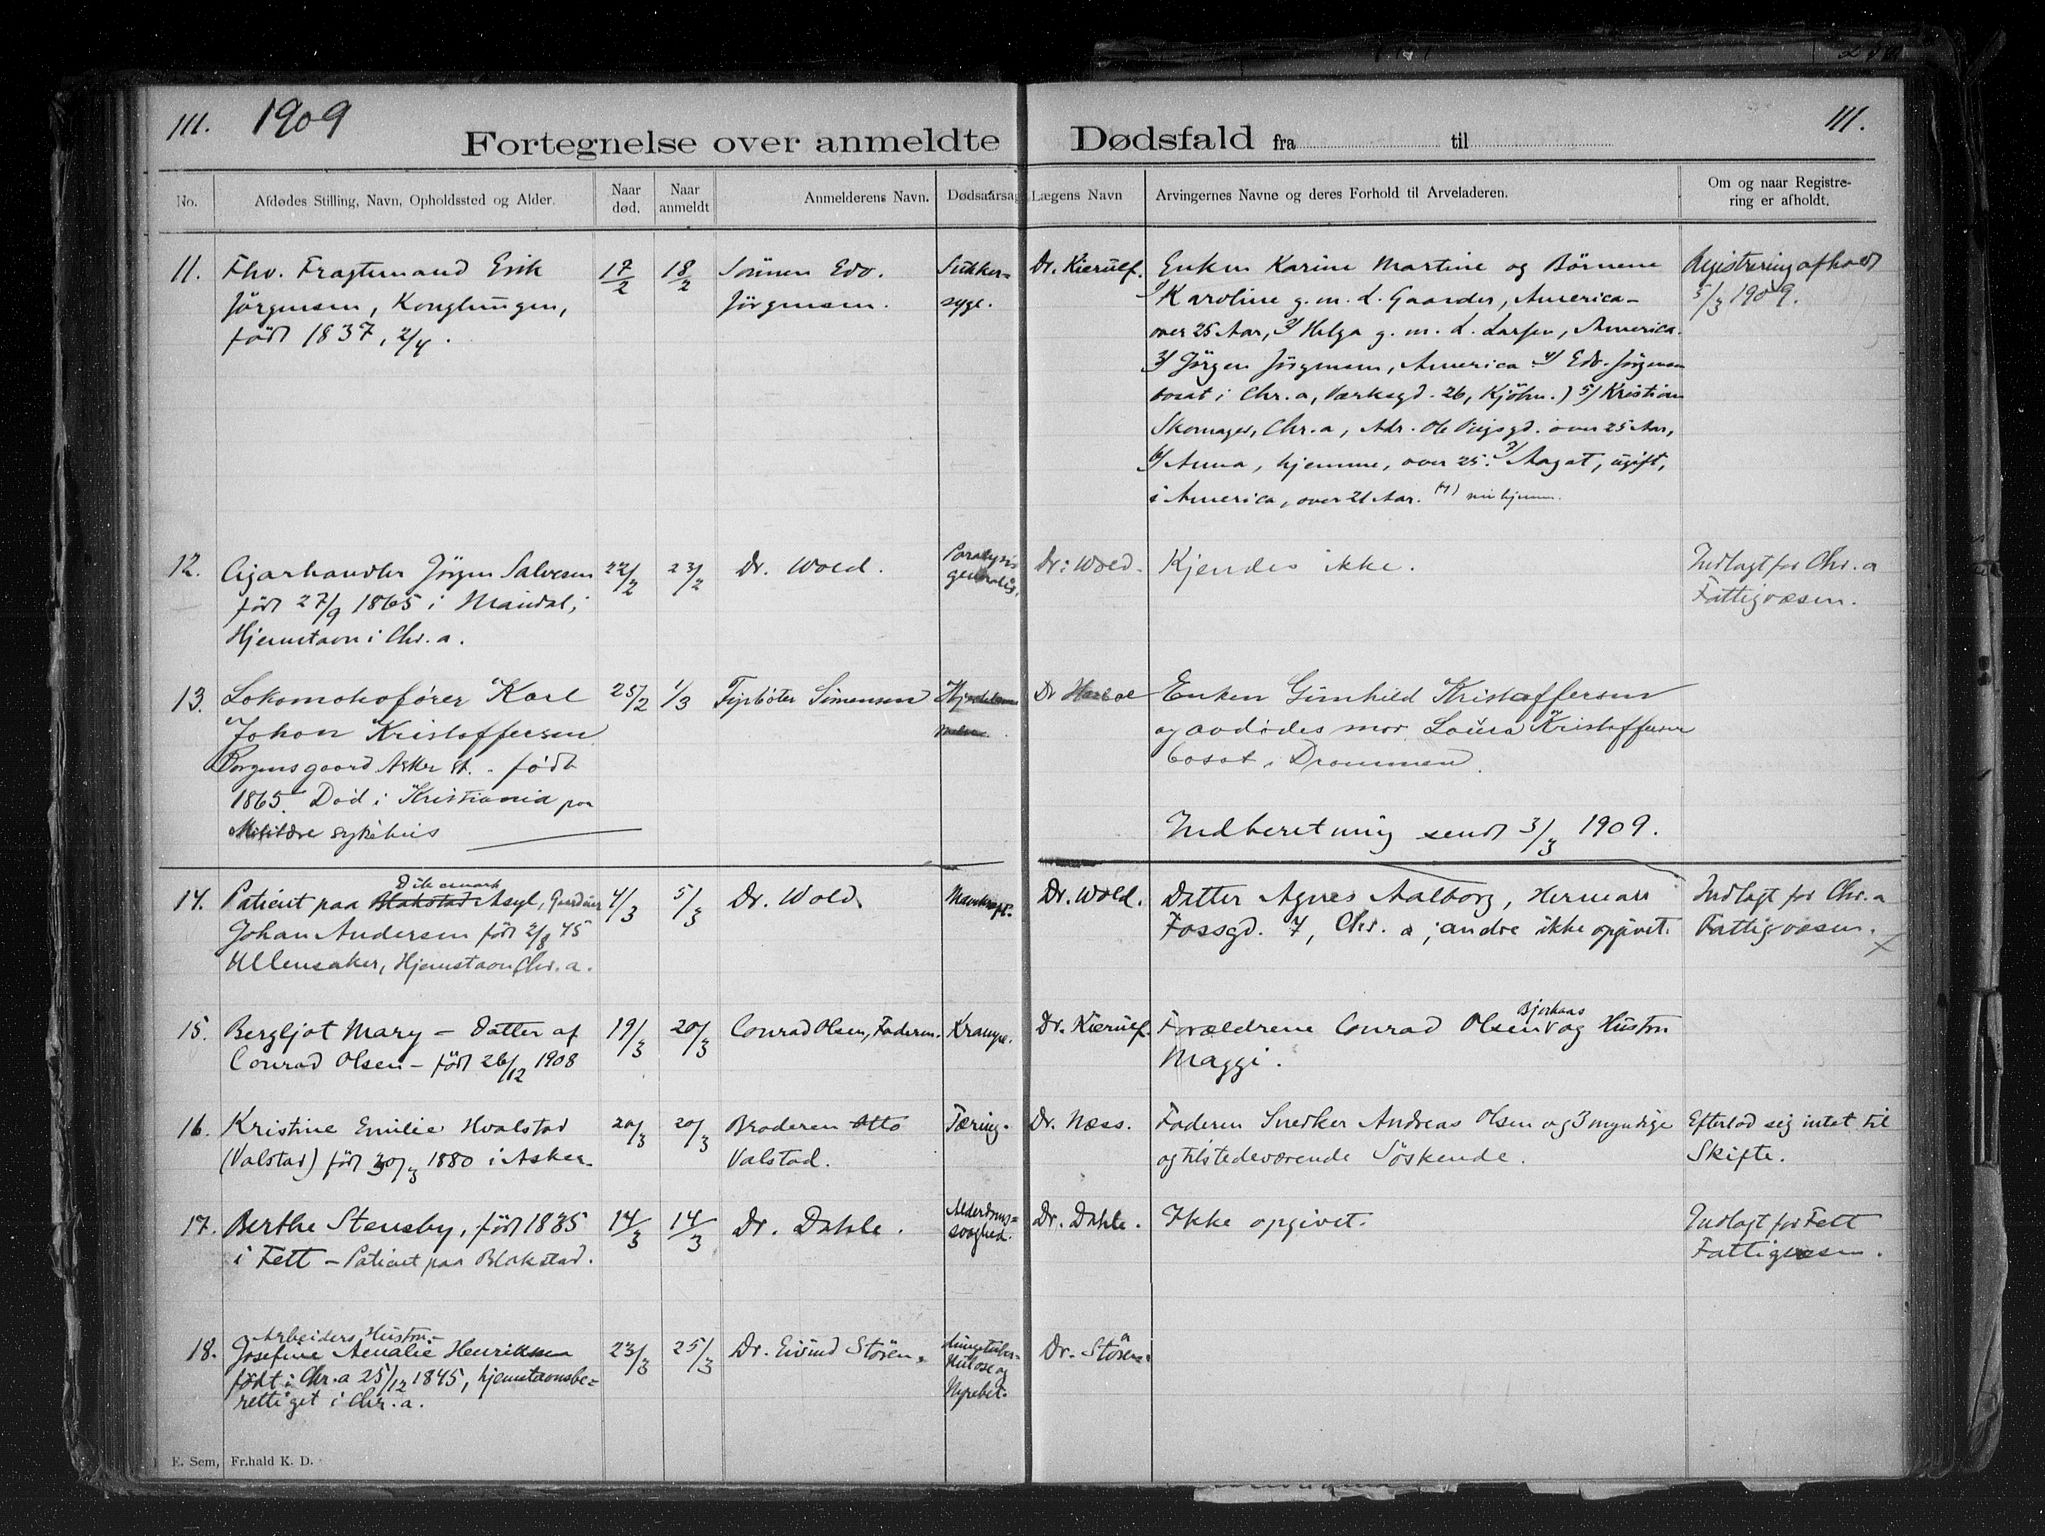 111. 1909
111.
Fortegnelse over anmeldte Dødsfald fra til
No.
Afdødes Stilling, Navn, Opholdssted og Alder.
Naar død.
Naar anmeldt
Anmelderens Navn.
Dødsaarsag
Lægens Navn
Arvingernes Navne og deres Forhold til Arveladeren.
Om og naar Registre-
ring er afholdt.
11.
Fhv. Fragtemand Erik
Jörgensen, Konglungen,
född 1837, 2/4.
17/2
18/2
Sönnen Edv.
Jörgensen.
Sukker-
syge.
Dr. Kierulf.
Enken Karine Martine og Börnene
1/ Karoline g. m. L. Gaarder, America-
over 25 Aar, 2/ Helga g. m. L. Larsen, America.
3/ Jörgen Jörgensen, America 4/ Edv. Jörgensen
bosat i Chr.a, Værksgd. 26, Kjöbm.) 5/ Kristian
Skomager, Chr.a, Adr. Ole Vigsgd. over 25 Aar,
6/ Anna, hjemme, over 25. 7/ Aagot, ugift,
i America, over 21 Aar.
Registrering afholdt
5/3 1909.
12.
Cigarhandler Jörgen Salvesen
född 27/9 1865 i Mandal;
Hjemstavn i Chr.a.
22/2
23/2
Dr. Wold.
Paralysis
generalis.
Dr. Wold.
Kjendes ikke.
Indlagt for Chr.a
Fattigvæsen.
13.
Lokomotivfører Karl
Johan Kristoffersen
Borgensgaard Asker st. - født
1865. Död i Kristiania paa
Militære sykehus
25/2
1/3
Fyrböter Simensen
Dr
Enken Gunhild Kristoffersen
og avdödes mor Laura Kristoffersen
bosat i Drammen.
Indberetning sendt 3/3 1909.
14.
Dikemark
Patient paa Blakstad Asyl,
Johan Andersen född 2/8 45
Ullensaker, Hjemstavn Chr.a.
4/3
5/3
Dr. Wold.
Dr. Wold.
Datter Agnes Aalborg, Herman
Fossgd. 7, Chr.a; andre ikke opgivet.
Indlagt for Chr.a
Fattigvæsen.
15.
Bergljot Mary - Datter af
Conrad Olsen - född 26/12 1908
19/3
20/3
Conrad Olsen, Faderen.
Krampe.
Dr. Kierulf.
Bjerkaas
Forældrene Conrad Olsen og Hustru
Maggi.
16.
Kristine Emilie Hvalstad
(Valstad) född 30/3 1880 i Asker.
20/3
20/3
Broderen Otto
Valstad.
Tæring.
Dr. Næss.
Faderen Snedker Andreas Olsen og 3 myndige
og tilstedeværende Söskende.
Efterlod sig intet til
Skifte.
17.
Berthe Stensby, född 1835
i Fett - Patient paa Blakstad.
14/3
14/3
Dr. Dahle.
Alderdoms-
svaghed.
Dr. Dahle.
Ikke opgivet.
Indlagt for Fett
Fattigvæsen.
18.
Arbeiders Hustru-
Josefine Amalie Henriksen
född i Chr.a 25/12 1845, hjemstavnsbe-
rettiget i Chr.a.
23/3
25/3
Dr. Eivind Stören.
Lungetuber-
kulose og
Nyrebet.
Dr. Stören.
E. Sem, Fr.hald K. D.